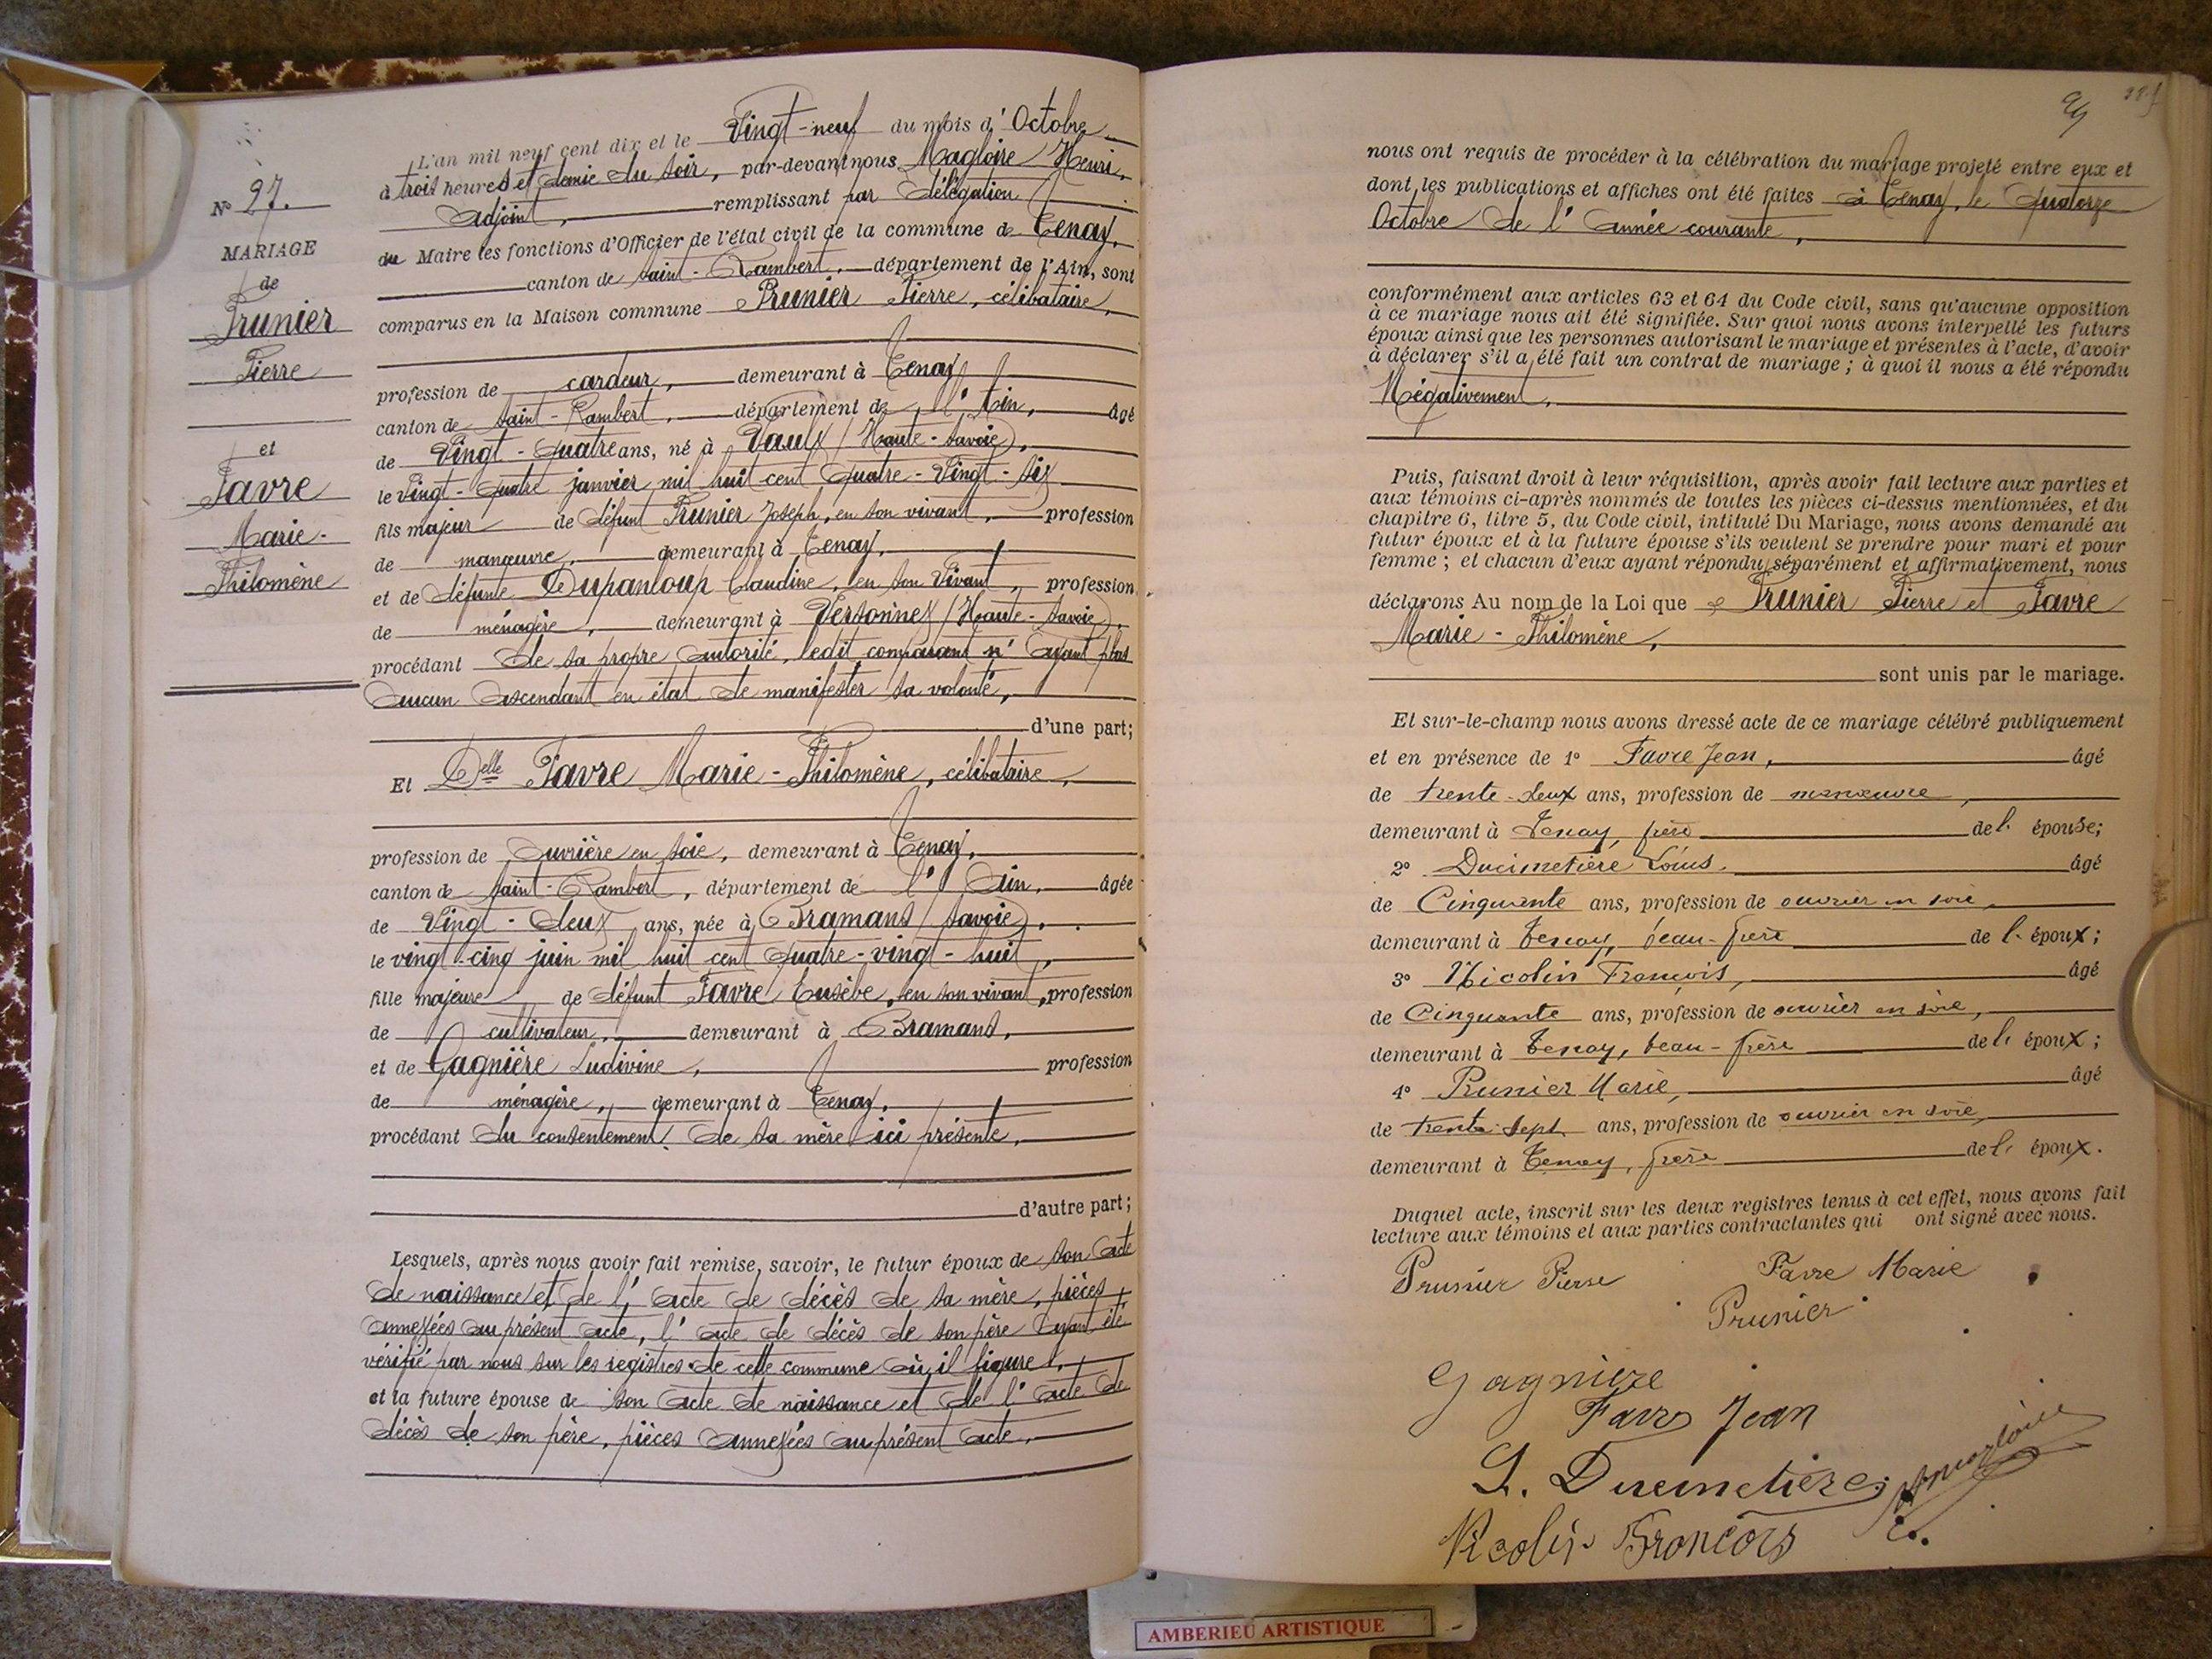 N° 27.
MARIAGE
de
Prunier
Pierre
et
Favre
Marie-
Philomène
L'an mil neuf cent dix et le Vingt-neuf du mois d'Octobre
à trois heures et demie du soir, par-devant nous Magloire Henri,
Adjoint, remplissant par délégation
du Maire les fonctions d'Officier de l'état civil de la commune de Tenay,
canton de Saint-Rambert, département de l'Ain, sont
comparus en la Maison commune Prunier Pierre, célibataire,
profession de cardeur, demeurant à Tenay
canton de Saint-Rambert, département de l'Ain, âgé
de Vingt-quatre ans, né à Vaulx (Haute-Savoie),
le Vingt-quatre janvier mil huit cent quatre-vingt-six
fils majeur de défunt Prunier Joseph, en son vivant, profession
de manœuvre, demeurant à Tenay,
et de défunte Dupanloup Claudine, en son vivant, profession
de ménagère, demeurant à Versonnex (Haute-Savoie),
procédant de sa propre autorité, ledit comparant n'ayant plus
aucun ascendant en état de manifester sa volonté,
d'une part;
Et Delle Favre Marie-Philomène, célibataire,
profession de Ouvrière en soie, demeurant à Tenay,
canton de Saint-Rambert, département de l'Ain, âgée
de Vingt-deux ans, née à Bramans (Savoie),
le vingt-cinq juin mil huit cent quatre-vingt-huit,
fille majeure de défunt Favre Eusèbe, en son vivant, profession
de cultivateur, demeurant à Bramans,
et de Gagnière Ludivine, profession
de ménagère, demeurant à Tenay,
procédant du consentement de sa mère ici présente,
d'autre part;
Lesquels, après nous avoir fait remise, savoir, le futur époux de son acte
de naissance et de l'acte de décès de sa mère, pièces
annexées au présent acte, l'acte de décès de son père ayant été
vérifié par nous sur les registres de cette commune où il figure,
et la future épouse de son acte de naissance et de l'acte de
décès de son père, pièces annexées au présent acte,
nous ont requis de procéder à la célébration du mariage projeté entre eux et
dont les publications et affiches ont été faites à Tenay, le Quatorze
Octobre de l'Année courante,
conformément aux articles 63 et 64 du Code civil, sans qu'aucune opposition
à ce mariage nous ait été signifiée. Sur quoi nous avons interpellé les futurs
époux ainsi que les personnes autorisant le mariage et présentes à l'acte, d'avoir
à déclarer s'il a été fait un contrat de mariage ; à quoi il nous a été répondu
Négativement,
Puis, faisant droit à leur réquisition, après avoir fait lecture aux parties et
aux témoins ci-après nommés de toutes les pièces ci-dessus mentionnées, et du
chapitre 6, titre 5, du Code civil, intitulé Du Mariage, nous avons demandé au
futur époux et à la future épouse s'ils veulent se prendre pour mari et pour
femme ; et chacun d'eux ayant répondu séparément et affirmativement, nous
déclarons Au nom de la Loi que Prunier Pierre et Favre
Marie-Philomène,
sont unis par le mariage.
Et sur-le-champ nous avons dressé acte de ce mariage célébré publiquement
et en présence de 1° Favre Jean, âgé
de trente-deux ans, profession de manœuvre,
demeurant à Tenay, frère de l' épouse;
2° Ducimetière Louis, âgé
de Cinquante ans, profession de ouvrier en soie,
demeurant à Tenay, beau-frère de l' époux;
3° Nicolin François, âgé
de Cinquante ans, profession de ouvrier en soie,
demeurant à Tenay, beau-frère de l' époux;
4° Prunier Marie, âgé
de trente-sept ans, profession de ouvrier en soie,
demeurant à Tenay, frère de l' époux.
Duquel acte, inscrit sur les deux registres tenus à cet effet, nous avons fait
lecture aux témoins et aux parties contractantes qui ont signé avec nous.
Prunier Pierre Favre Marie
Prunier
Gagnière
Favre Jean
L. Ducimetière
Hmagloire
Nicolin François
AMBERIEU ARTISTIQUE